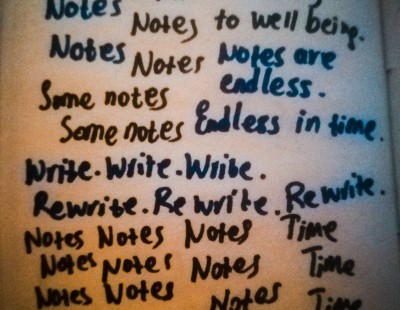 Notes
Notes to well being.
Notes Notes Notes are
endless.
Some notes
Some notes Endless in time.
Write. Write. Write.
Rewrite. Rewrite. Rewrite.
Notes Notes Notes Time
Notes Notes Notes Time
Notes Notes Notes Time